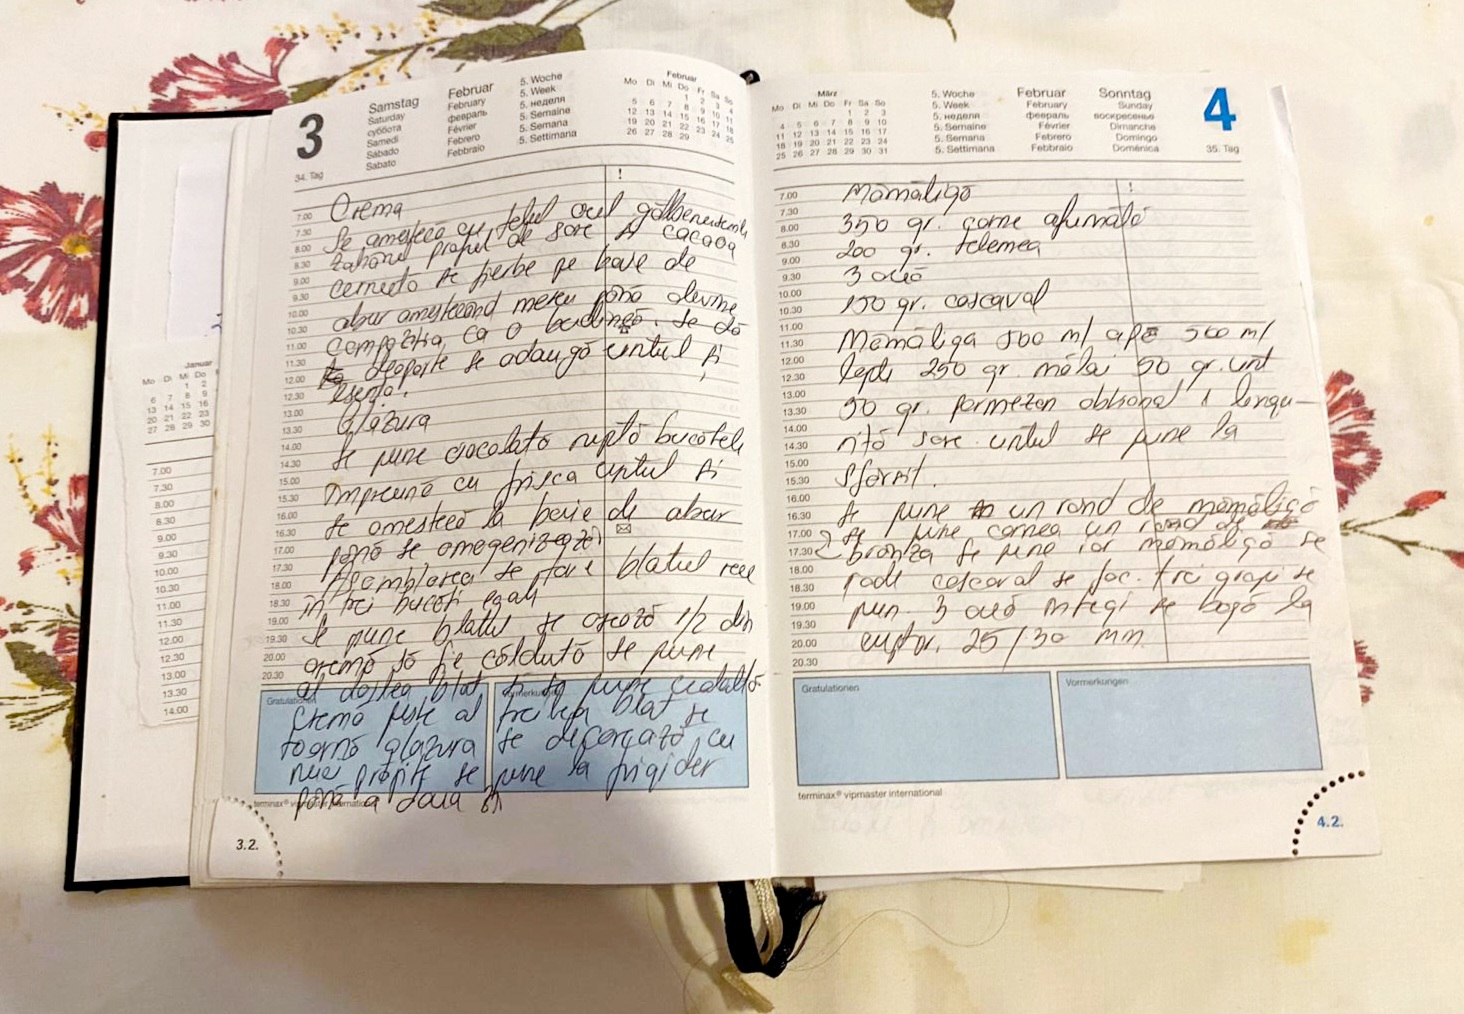 3
Samstag
Saturday
суббота
Samedi
Sábado
Sabato
Februar
February
февраль
Février
Febrero
Febbraio
5. Woche
5. Week
5. неделя
5. Semaine
5. Semana
5. Settimana
Februar
Mo Di Mi Do Fr Sa So
1 2 3 4
5 6 7 8 9 10 11
12 13 14 15 16 17 18
19 20 21 22 23 24 25
26 27 28 29
34. Tag
!
Crema
Se amesteca cu telul oul gălbenusurile
zahărul praful de sare și cacaoa
cernuto se fierbe pe baie de
abur amestecând mereu până devine
compoziția ca o budincă. Se dă
deoparte se adaugă untul și
esența.
Glazura
Se pune ciocolata ruptă bucățele
împreună cu frișca untul și
se amestecă la baie de abur
până se omogenizează
Asamblarea se taie blatul rece
în trei bucăți egali
Se pune blatul se așează 1/2 din
cremă să fie călduță se pune
al doilea blat și se pune cealaltă
cremă peste al treilea blat se
toarnă glazura se decorează cu
nuci prăjite se pune la frigider
până a doua zi
Gratulationen
Vormerkungen
terminax® vipmaster international
3.2.
März
Mo Di Mi Do Fr Sa So
1 2 3
4 5 6 7 8 9 10
11 12 13 14 15 16 17
18 19 20 21 22 23 24
25 26 27 28 29 30 31
5. Woche
5. Week
5. неделя
5. Semaine
5. Semana
5. Settimana
Februar
February
февраль
Février
Febrero
Febbraio
Sonntag
Sunday
воскресенье
Dimanche
Domingo
Doménica
4
35. Tag
!
7.00 Mămăligă
7.30
8.00 350 gr. carne afumată
8.30 200 gr. telemea
9.00
9.30 3 ouă
10.00
10.30 150 gr. cascaval
11.00
11.30 Mămăliga 500 ml apă 500 ml
12.00
12.30 lapte 250 gr. mălai 50 gr. unt
13.00
13.30 50 gr. parmezan obtional 1 lengu-
14.00
14.30 riță sare untul se pune la
15.00
15.30 sfârsit.
16.00
16.30 Se pune un rand de mămăligă
17.00 se pune carnea un rand de
17.30 branza se pune iar mămăligă se
18.00
18.30 rade cascaval se fac trei gropi se
19.00 pun 3 ouă intregi se bagă la
19.30
20.00 cuptor. 25/30 min
20.30
Gratulationen
Vormerkungen
terminax® vipmaster international
4.2.
Januar
Mo Di Mi Do
1 2
6 7 8 9
13 14 15 16
20 21 22 23
27 28 29 30
7.00
7.30
8.00
8.30
9.00
9.30
10.00
10.30
11.00
11.30
12.00
12.30
13.00
13.30
14.00